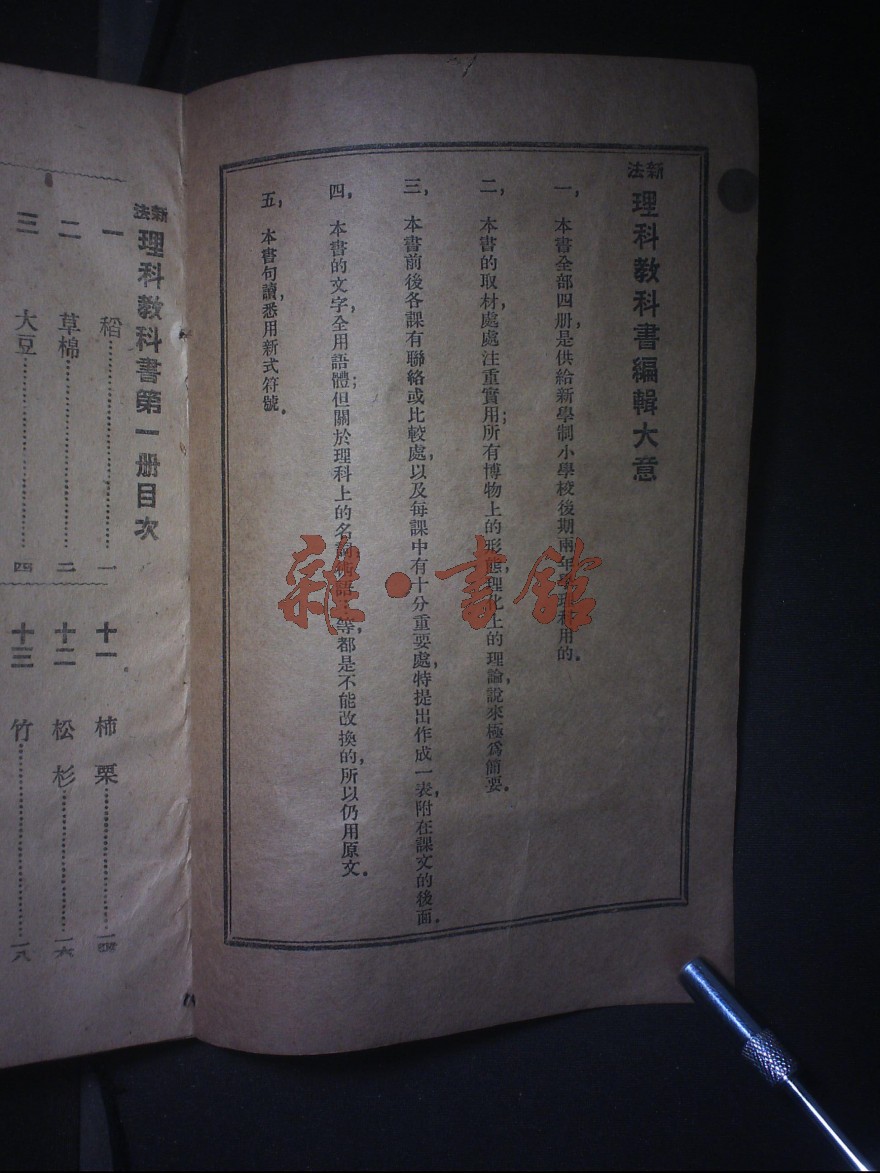 新法理科教科書編輯大意
一，本書全部四册，是供給新學制小學校後期兩年學理科用的。
二，本書的取材，處處注重實用；所有博物上的形態，理化上的理論，說來極爲簡要。
三，本書前後各課有聯絡或比較處，以及每課中有十分重要處，特提出作成一表，附在課文的後面。
四，本書的文字，全用語體；但關於理科上的名詞術語等，都是不能改換的，所以仍用原文。
五，本書句讀，悉用新式符號。
新法理科教科書第一册目次
一 稻 一
二 草棉 二
三 大豆 四
十一 柿 栗 一四
十二 松 杉 一六
十三 竹 一八
雜·書館